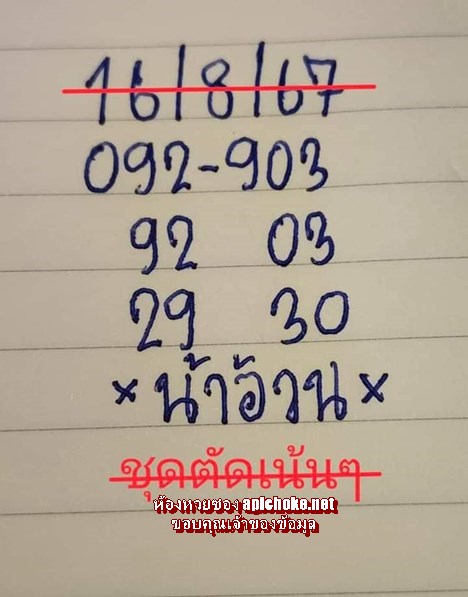 16/8/67
092-903
92 03
29 30
× น้าอ้วน ×
ชุดตัดเน้นๆ
ห้องหวยซอง apichoke.net
ขอบคุณเจ้าของข้อมูล